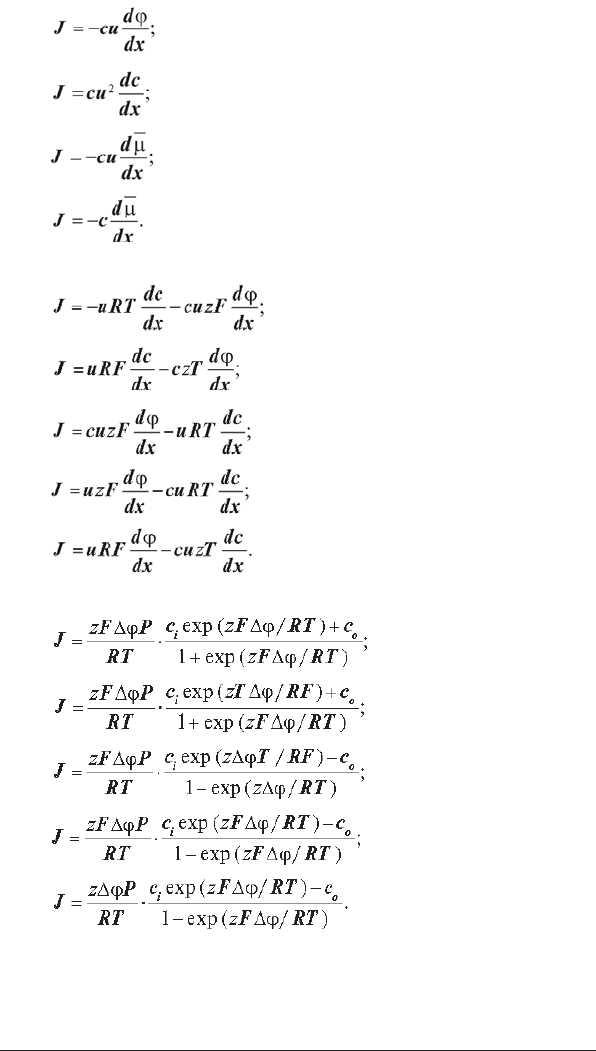 J = −cu dφ/dx;
J = cu² dc/dx;
J − −cu dμ̄/dx;
J = −c dμ̄/dx.
J = −uRT dc/dx − cuzF dφ/dx;
J = uRF dc/dx − czT dφ/dx;
J = cuzF dφ/dx − uRT dc/dx;
J = uzF dφ/dx − cuRT dc/dx;
J = uRF dφ/dx − cuzT dc/dx.
J = zFΔφP/RT · (cᵢ exp (zFΔφ/RT) + cₒ)/(1 + exp (zFΔφ/RT));
J = zFΔφP/RT · (cᵢ exp (zTΔφ/RF) + cₒ)/(1 + exp (zFΔφ/RT));
J = zFΔφP/RT · (cᵢ exp (zΔφT/RF) − cₒ)/(1 − exp (zΔφ/RT));
J = zFΔφP/RT · (cᵢ exp (zFΔφ/RT) − cₒ)/(1 − exp (zFΔφ/RT));
J = zΔφP/RT · (cᵢ exp (zFΔφ/RT) − cₒ)/(1 − exp (zFΔφ/RT)).